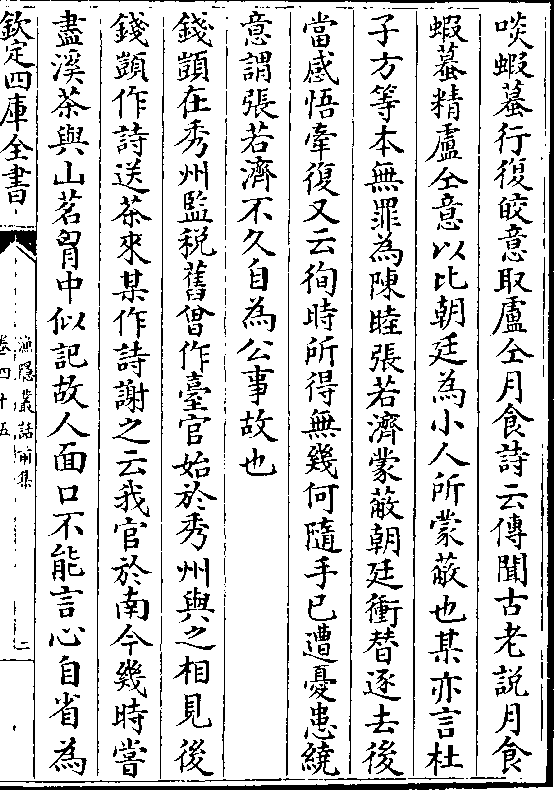 啖蝦蟇行復皎意取盧仝月食詩云傳聞古老說月食
蝦蟇精盧仝意以比朝廷為小人所蒙蔽也某亦言杜
子方等本無罪為陳睦張若濟蒙蔽朝廷衝替逐去後
當感悟牽復又云徇時所得無幾何隨手已遭憂患繞
意謂張若濟不久自為公事故也
錢顗在秀州監稅舊曾作臺官始於秀州與之相見後
錢顗作詩送茶來某作詩謝之云我官於南今幾時嘗
盡溪茶與山茗胷中似記故人面口不能言心自省為
欽定四庫全書
漁隱叢話前集
卷四十五
二